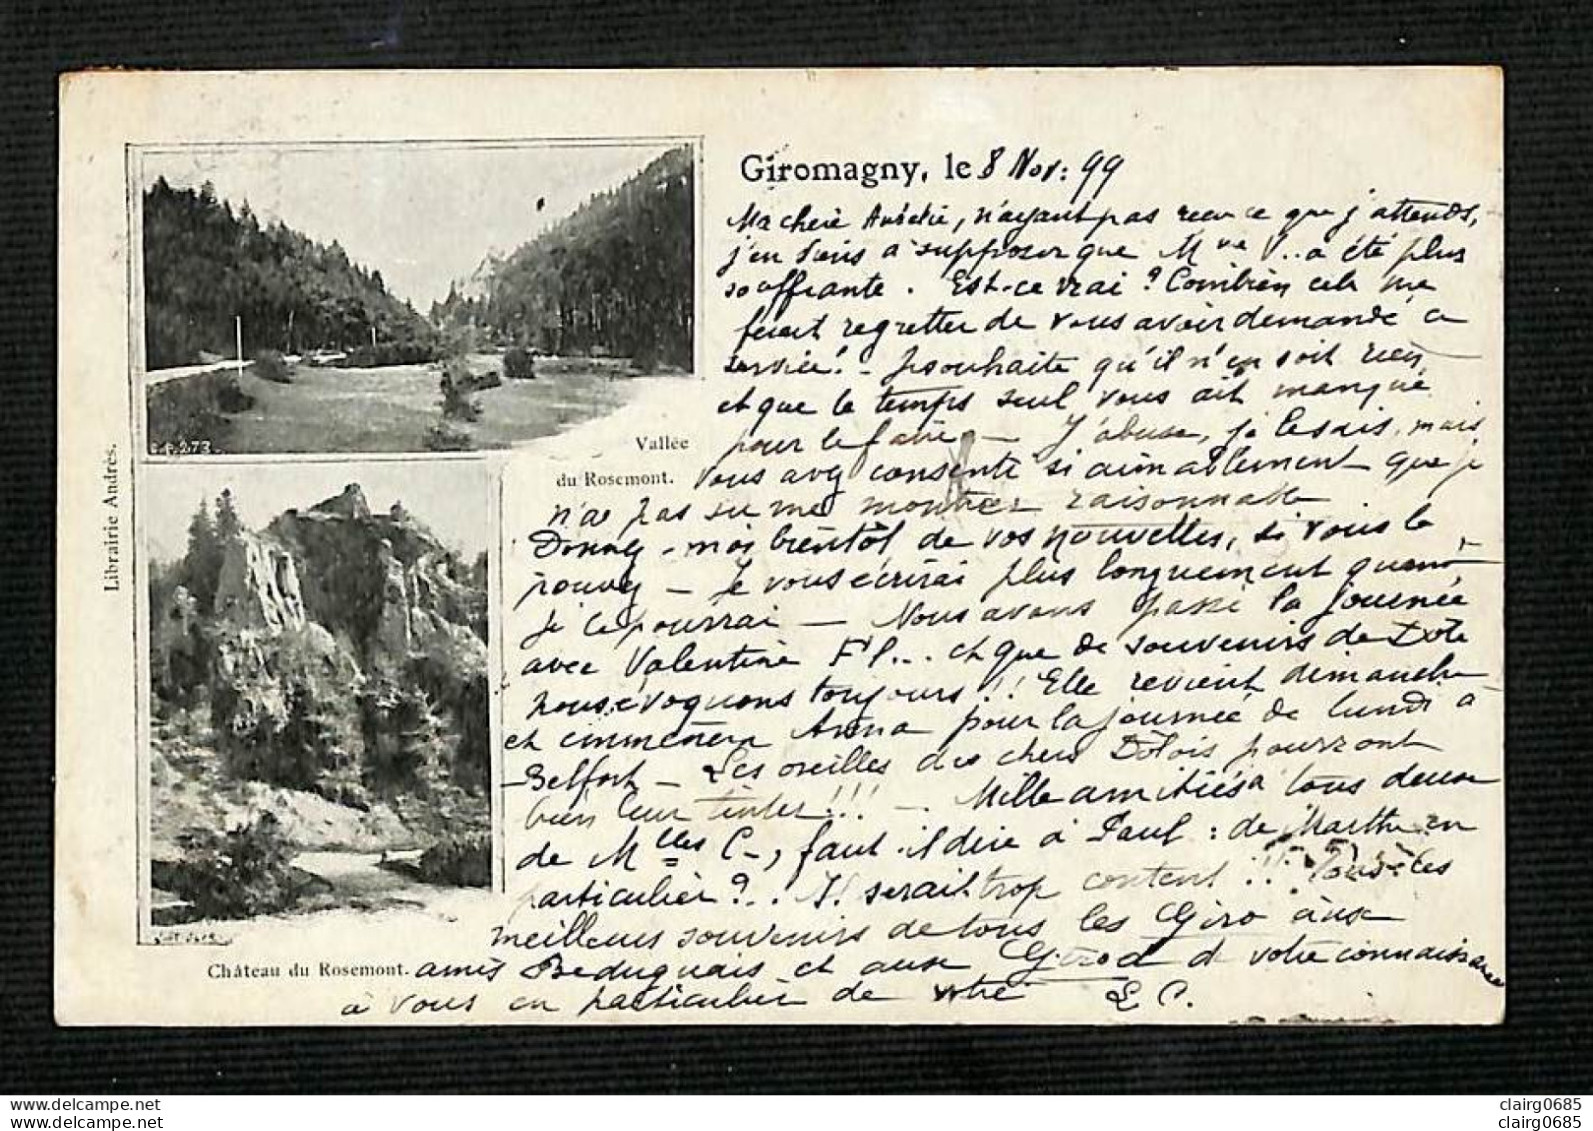 Giromagny, le 8 Nov: 99
Ma chère Aurélie, n'ayant pas reçu ce que j'attends,
j'en suis à supposer que Mme V.. a été plus
souffrante. Est-ce vrai? Combien cela me
ferait regretter de vous avoir demandé ce
service! - Je souhaite qu'il n'en soit rien
et que le temps seul vous ait manqué
pour le faire - J'abuse, je le sais, mais
vous avez consenti si aimablement que je
n'ai pas su me montrer raisonnable
Donnez-moi bientôt de vos nouvelles, si vous le
pouvez - Je vous écrirai plus longuement quand
je le pourrai - Nous avons passé la journée
avec Valentine Fl... et que de souvenirs de Dôle
nous évoquons toujours!! Elle revient dimanche
et emmènera Anna pour la journée de lundi à
Belfort - Les oreilles des chers Dôlois pourront
bien leur tinter!!! - Mille amitiés à tous deux
de Mlles C-, faut-il dire à Paul: de Marthe en
particulier?.. Il serait trop content!! Tous les
meilleurs souvenirs de tous les Giro aux
amis et aux Girod de votre connaissance
à vous en particulier de votre L C.
Vallée
du Rosemont.
Château du Rosemont.
Librairie Andrès.
273
clairg0685
clairg0685
www.delcampe.net
www.delcampe.net